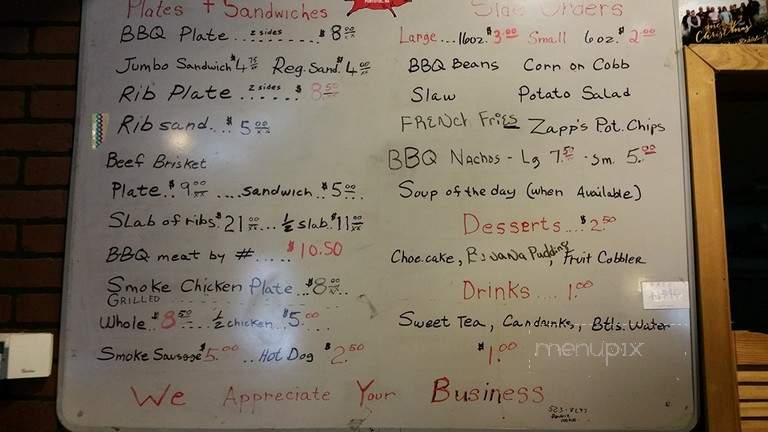 Plates + Sandwiches
BBQ Plate 2 sides $8.00
Jumbo Sandwich $4.75 Reg. Sand. $4.00
Rib Plate 2 sides $8.50
Rib sand... $5.00
Beef Brisket
Plate $9.00 .... sandwich $5.00
Slab of ribs $21.00... ½ slab $11.00
BBQ meat by #..... $10.50
Smoke Chicken Plate $8.00
GRILLED
Whole.. $8.50 ½ chicken.. $5.00
Smoke Sausage $5.00 ... Hot Dog $2.50
Side Orders
Large... 16oz. $3.00 Small 6oz. $2.00
BBQ Beans Corn on Cobb
Slaw Potato Salad
FRENCH FRIES Zapp's Pot. Chips
BBQ Nachos - Lg 7.50 - Sm. 5.00
Soup of the day (when Available)
Desserts.... $2.50
Choc. cake, BaNaNa Pudding, Fruit Cobbler
Drinks .... 1.00
Sweet Tea, Can drinks, Btls. Water
$1.00
menupix
We Appreciate Your Business
Christmas